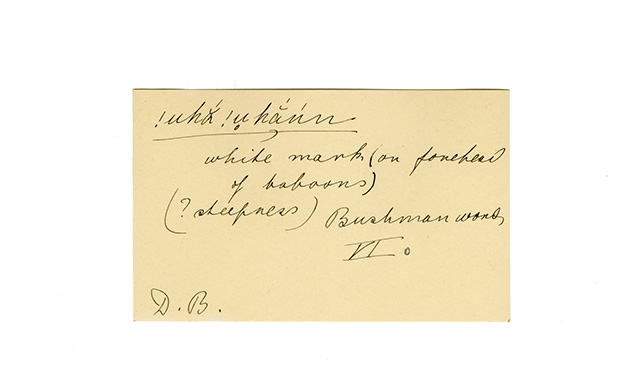 !uká !ukáń́n
white mark (on forehead
of baboons)
(? steepness) Bushman words
VI.
D. B.